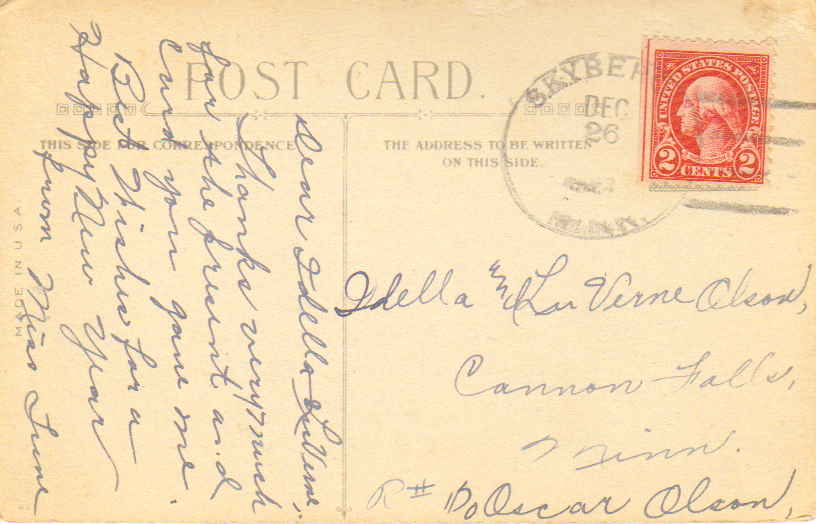 POST CARD.
THIS SIDE FOR CORRESPONDENCE
THE ADDRESS TO BE WRITTEN
ON THIS SIDE.
MADE IN U.S.A.
SKYBER
DEC
26
MINN.
UNITED STATES POSTAGE
2 CENTS 2
Dear Idella & LuVerne,:
Thanks very much
for the present and
card you gave me.
Best Wishes for a
Happy New Year
from Miss June
Idella and LuVerne Olson,
Cannon Falls,
Minn.
R# Oscar Olson,